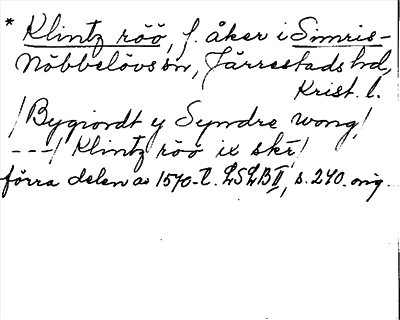 * Klintz röö, f. åker i Simris-
Nöbbelövs sn, Järrestads hd,
Krist. l.
/Bygiordt y Syndre wong/
---/ Klintz röö ix skr/
förra delen av 1570-t. LSLB II, s. 240. orig.